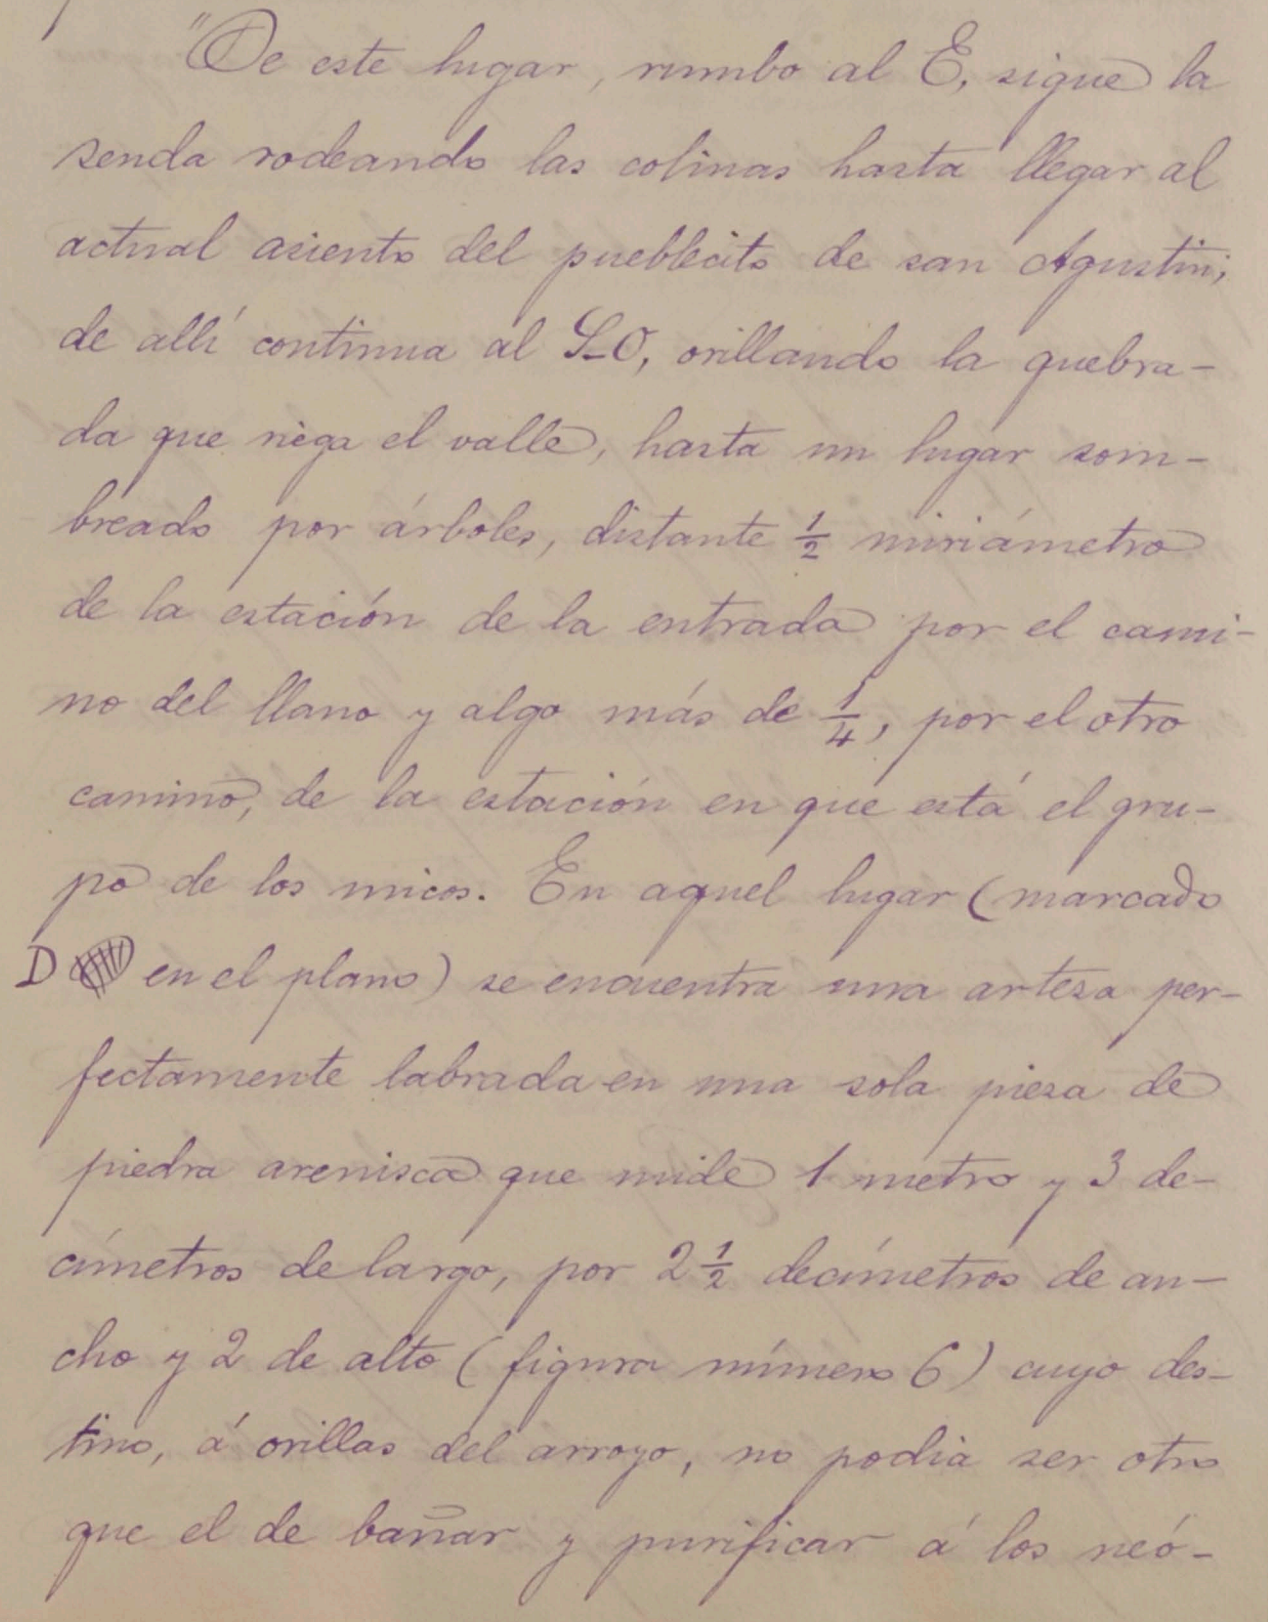 "De este lugar, rumbo al E, sigue la
senda rodeando las colinas hasta llegar al
actual asiento del pueblecito de san Agustin;
de allí continua al S-O, orillando la quebra-
da que riega el valle, hasta un lugar som-
breado por árboles, distante ½ miriámetro
de la estación de la entrada por el cami-
no del llano y algo más de ¼, por el otro
camino, de la estación en que está el gru-
po de los micos. En aquel lugar (marcado
D en el plano) se encuentra una artesa per-
fectamente labrada en una sola pieza de
piedra arenisca que mide 1 metro y 3 de-
címetros de largo, por 2½ decímetros de an-
cho y 2 de alto (figura número 6) cuyo des-
tino, á orillas del arroyo, no podia ser otro
que el de bañar y purificar á los neó-